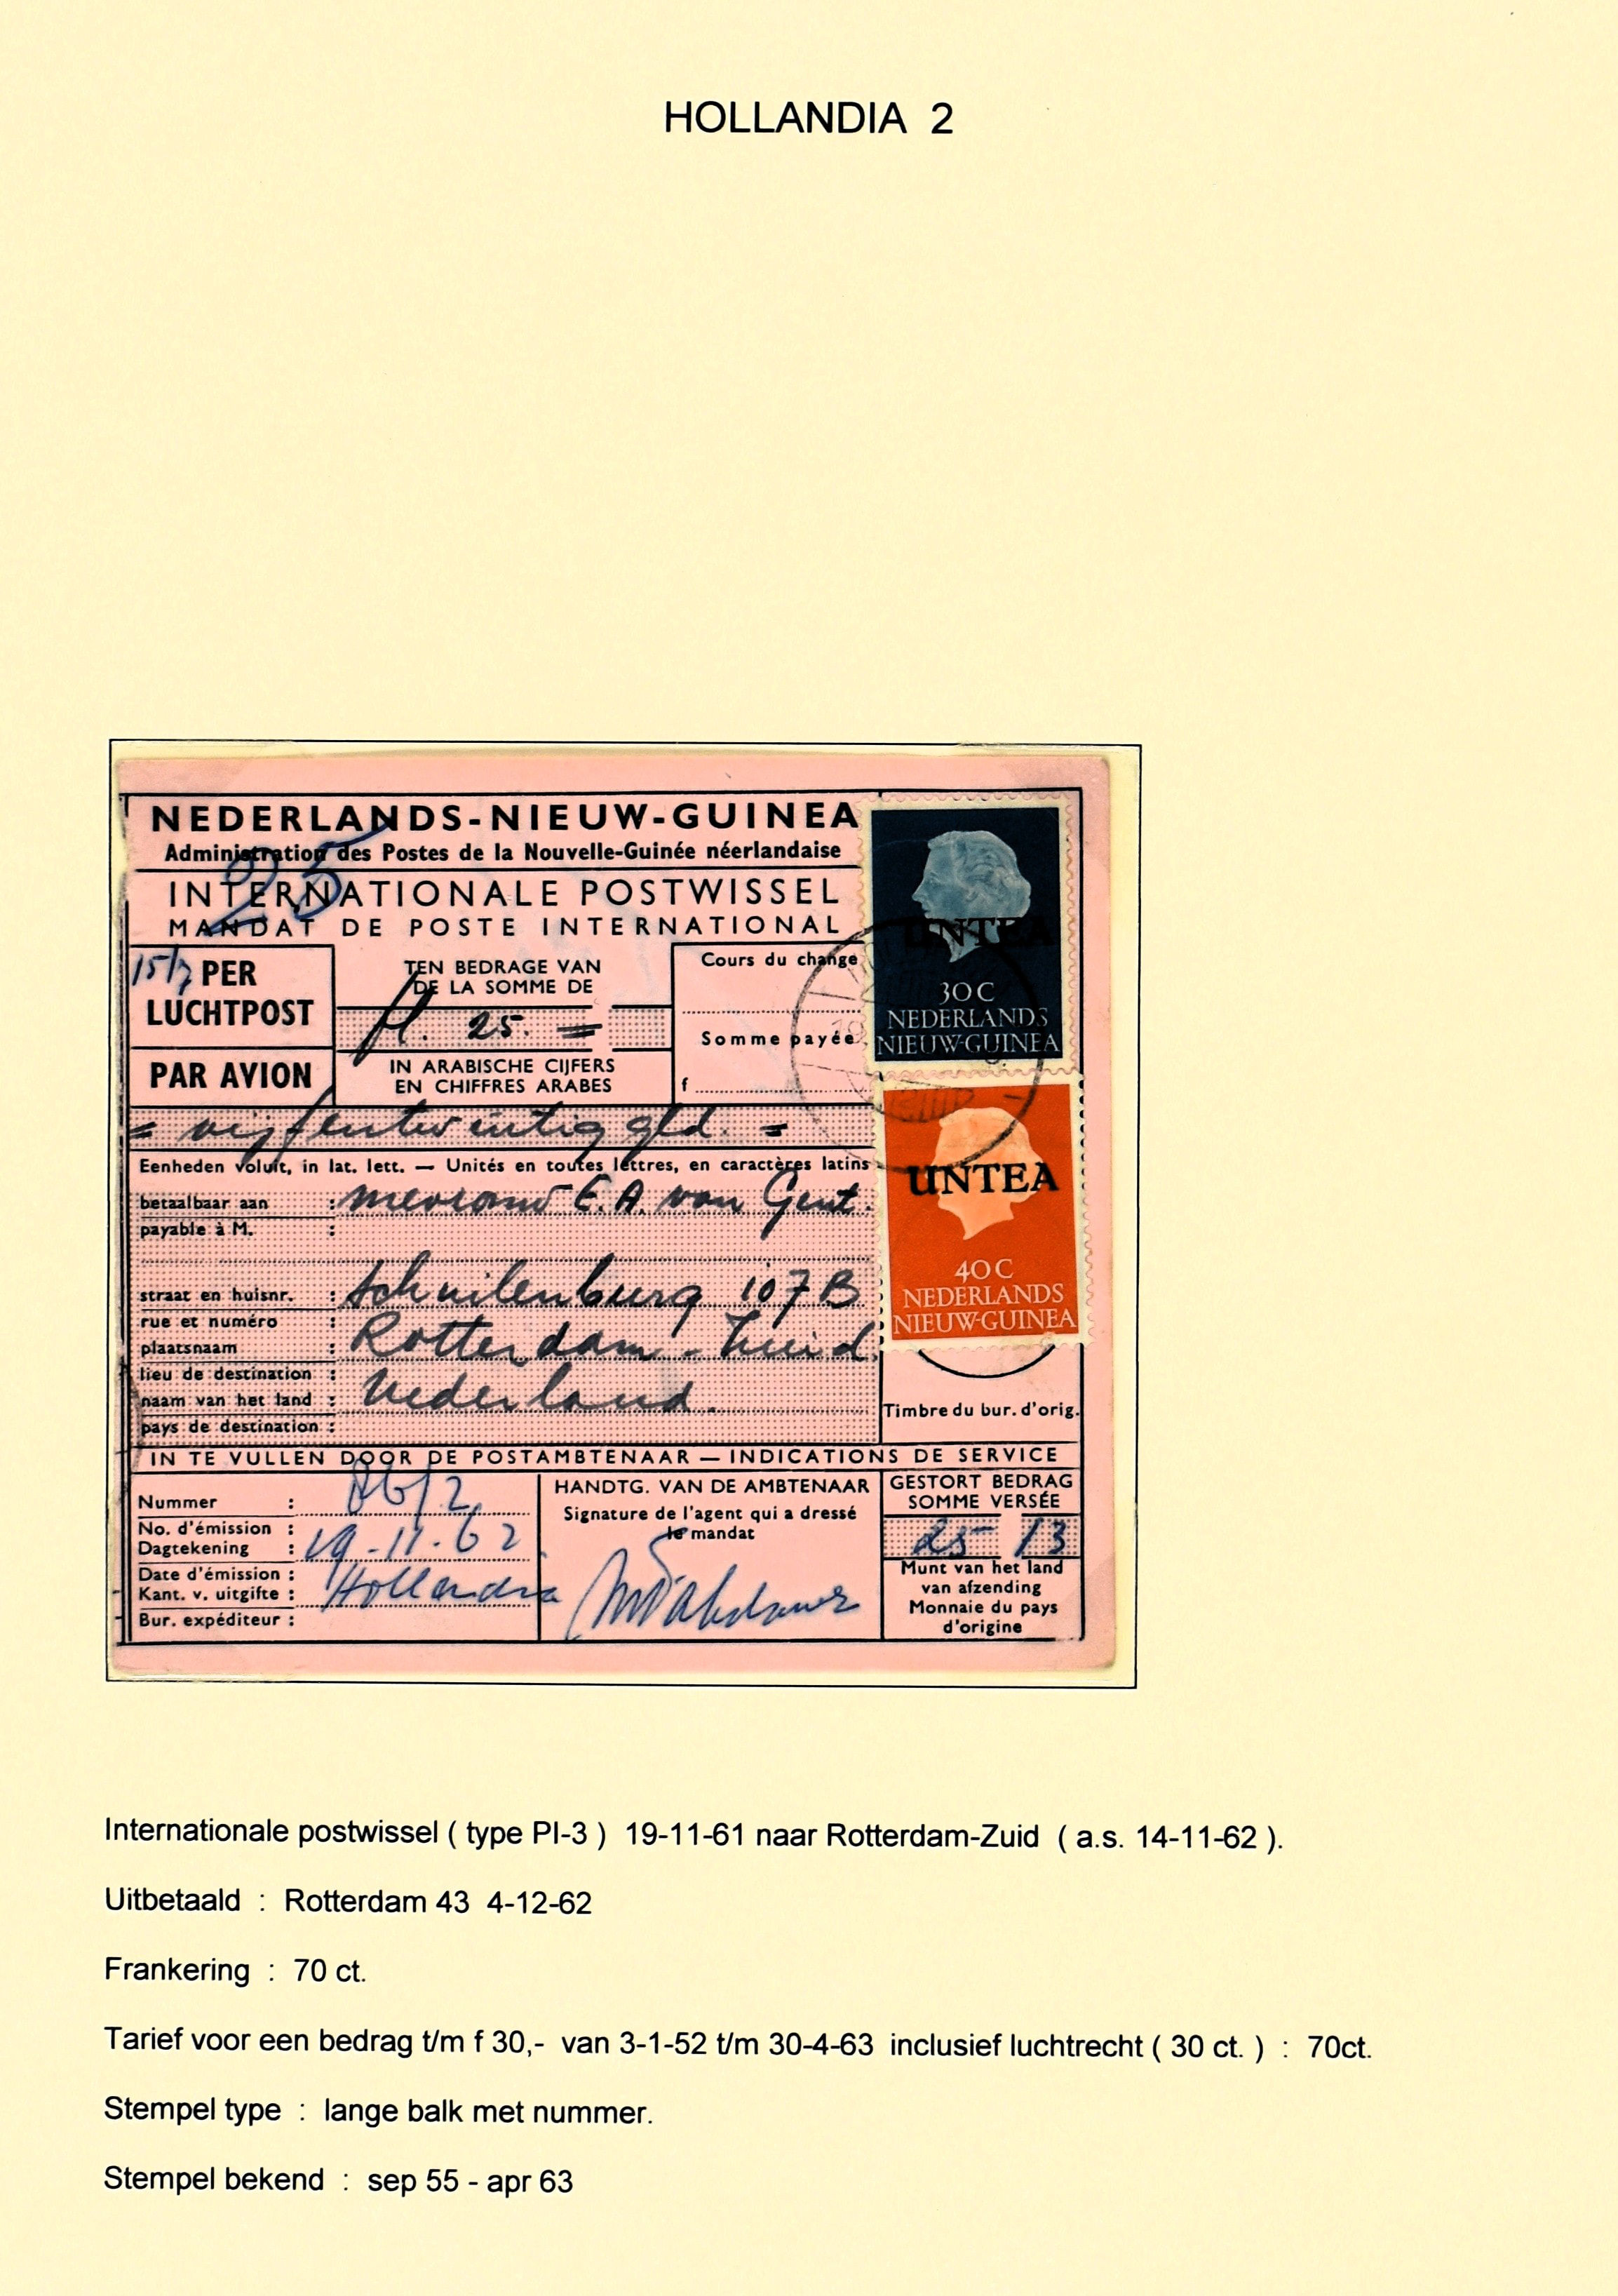 HOLLANDIA 2
NEDERLANDS-NIEUW-GUINEA
Administration des Postes de la Nouvelle-Guinée néerlandaise
25
INTERNATIONALE POSTWISSEL
MANDAT DE POSTE INTERNATIONAL
30 C
NEDERLANDS
NIEUW-GUINEA
UNTEA
15/7
PER
LUCHTPOST
PAR AVION
TEN BEDRAGE VAN
DE LA SOMME DE
fl. 25. =
IN ARABISCHE CIJFERS
EN CHIFFRES ARABES
Cours du change
Somme payée
f
= vijfentwintig gld. =
Eenheden voluit, in lat. lett. — Unités en toutes lettres, en caractères latins
betaalbaar aan : mevrouw E.A. van Gent.
payable à M. :
straat en huisnr. : Schuilenburg 107 B
rue et numéro :
plaatsnaam : Rotterdam - Zuid.
lieu de destination :
naam van het land : Nederland.
pays de destination :
UNTEA
40 C
NEDERLANDS
NIEUW-GUINEA
Timbre du bur. d'orig.
IN TE VULLEN DOOR DE POSTAMBTENAAR — INDICATIONS DE SERVICE
Nummer :
No. d'émission :
Dagtekening : 19-11-62
Date d'émission :
Kant. v. uitgifte : Hollandia
Bur. expéditeur :
HANDTG. VAN DE AMBTENAAR
Signature de l'agent qui a dressé
le mandat
GESTORT BEDRAG
SOMME VERSÉE
25 13
Munt van het land
van afzending
Monnaie du pays
d'origine
Internationale postwissel ( type PI-3 ) 19-11-61 naar Rotterdam-Zuid ( a.s. 14-11-62 ).
Uitbetaald : Rotterdam 43 4-12-62
Frankering : 70 ct.
Tarief voor een bedrag t/m f 30,- van 3-1-52 t/m 30-4-63 inclusief luchtrecht ( 30 ct. ) : 70ct.
Stempel type : lange balk met nummer.
Stempel bekend : sep 55 - apr 63